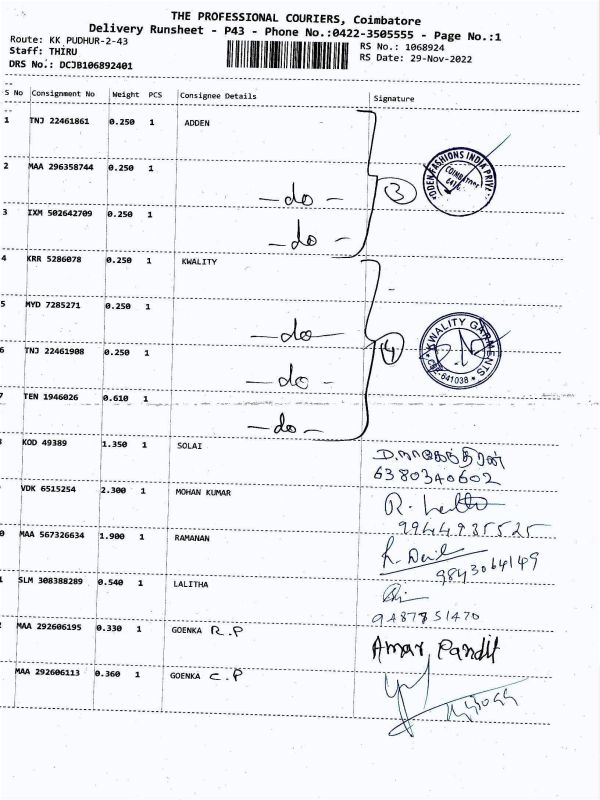 THE PROFESSIONAL COURIERS, Coimbatore
Delivery Runsheet - P43 - Phone No.:0422-3505555 - Page No.:1
Route: KK PUDHUR-2-43
Staff: THIRU
DRS No.: DCJB106892401
RS No.: 1068924
RS Date: 29-Nov-2022
S No Consignment No Weight PCS Consignee Details Signature
1 TNJ 22461861 0.250 1 ADDEN
2 MAA 296358744 0.250 1 -do-
3 IXM 502642709 0.250 1 -do-
3
COIMBATORE
4 KRR 5286078 0.250 1 KWALITY
5 MYD 7285271 0.250 1 -do-
6 TNJ 22461908 0.250 1 -do-
7 TEN 1946026 0.610 1 -do-
4
KWALITY GARMENTS
CBE-641038
KOD 49389 1.350 1 SOLAI
6380340602
VDK 6515254 2.300 1 MOHAN KUMAR
9944935525
0 MAA 567326634 1.900 1 RAMANAN
9843064149
1 SLM 308388289 0.540 1 LALITHA
9487851470
2 MAA 292606195 0.330 1 GOENKA R.P Amar Pandit
MAA 292606113 0.360 1 GOENKA C.P